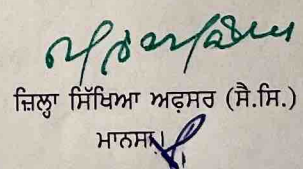 ਜ਼ਿਲ੍ਹਾ ਸਿੱਖਿਆ ਅਫ਼ਸਰ (ਸੈ.ਸਿ.)
ਮਾਨਸਾ